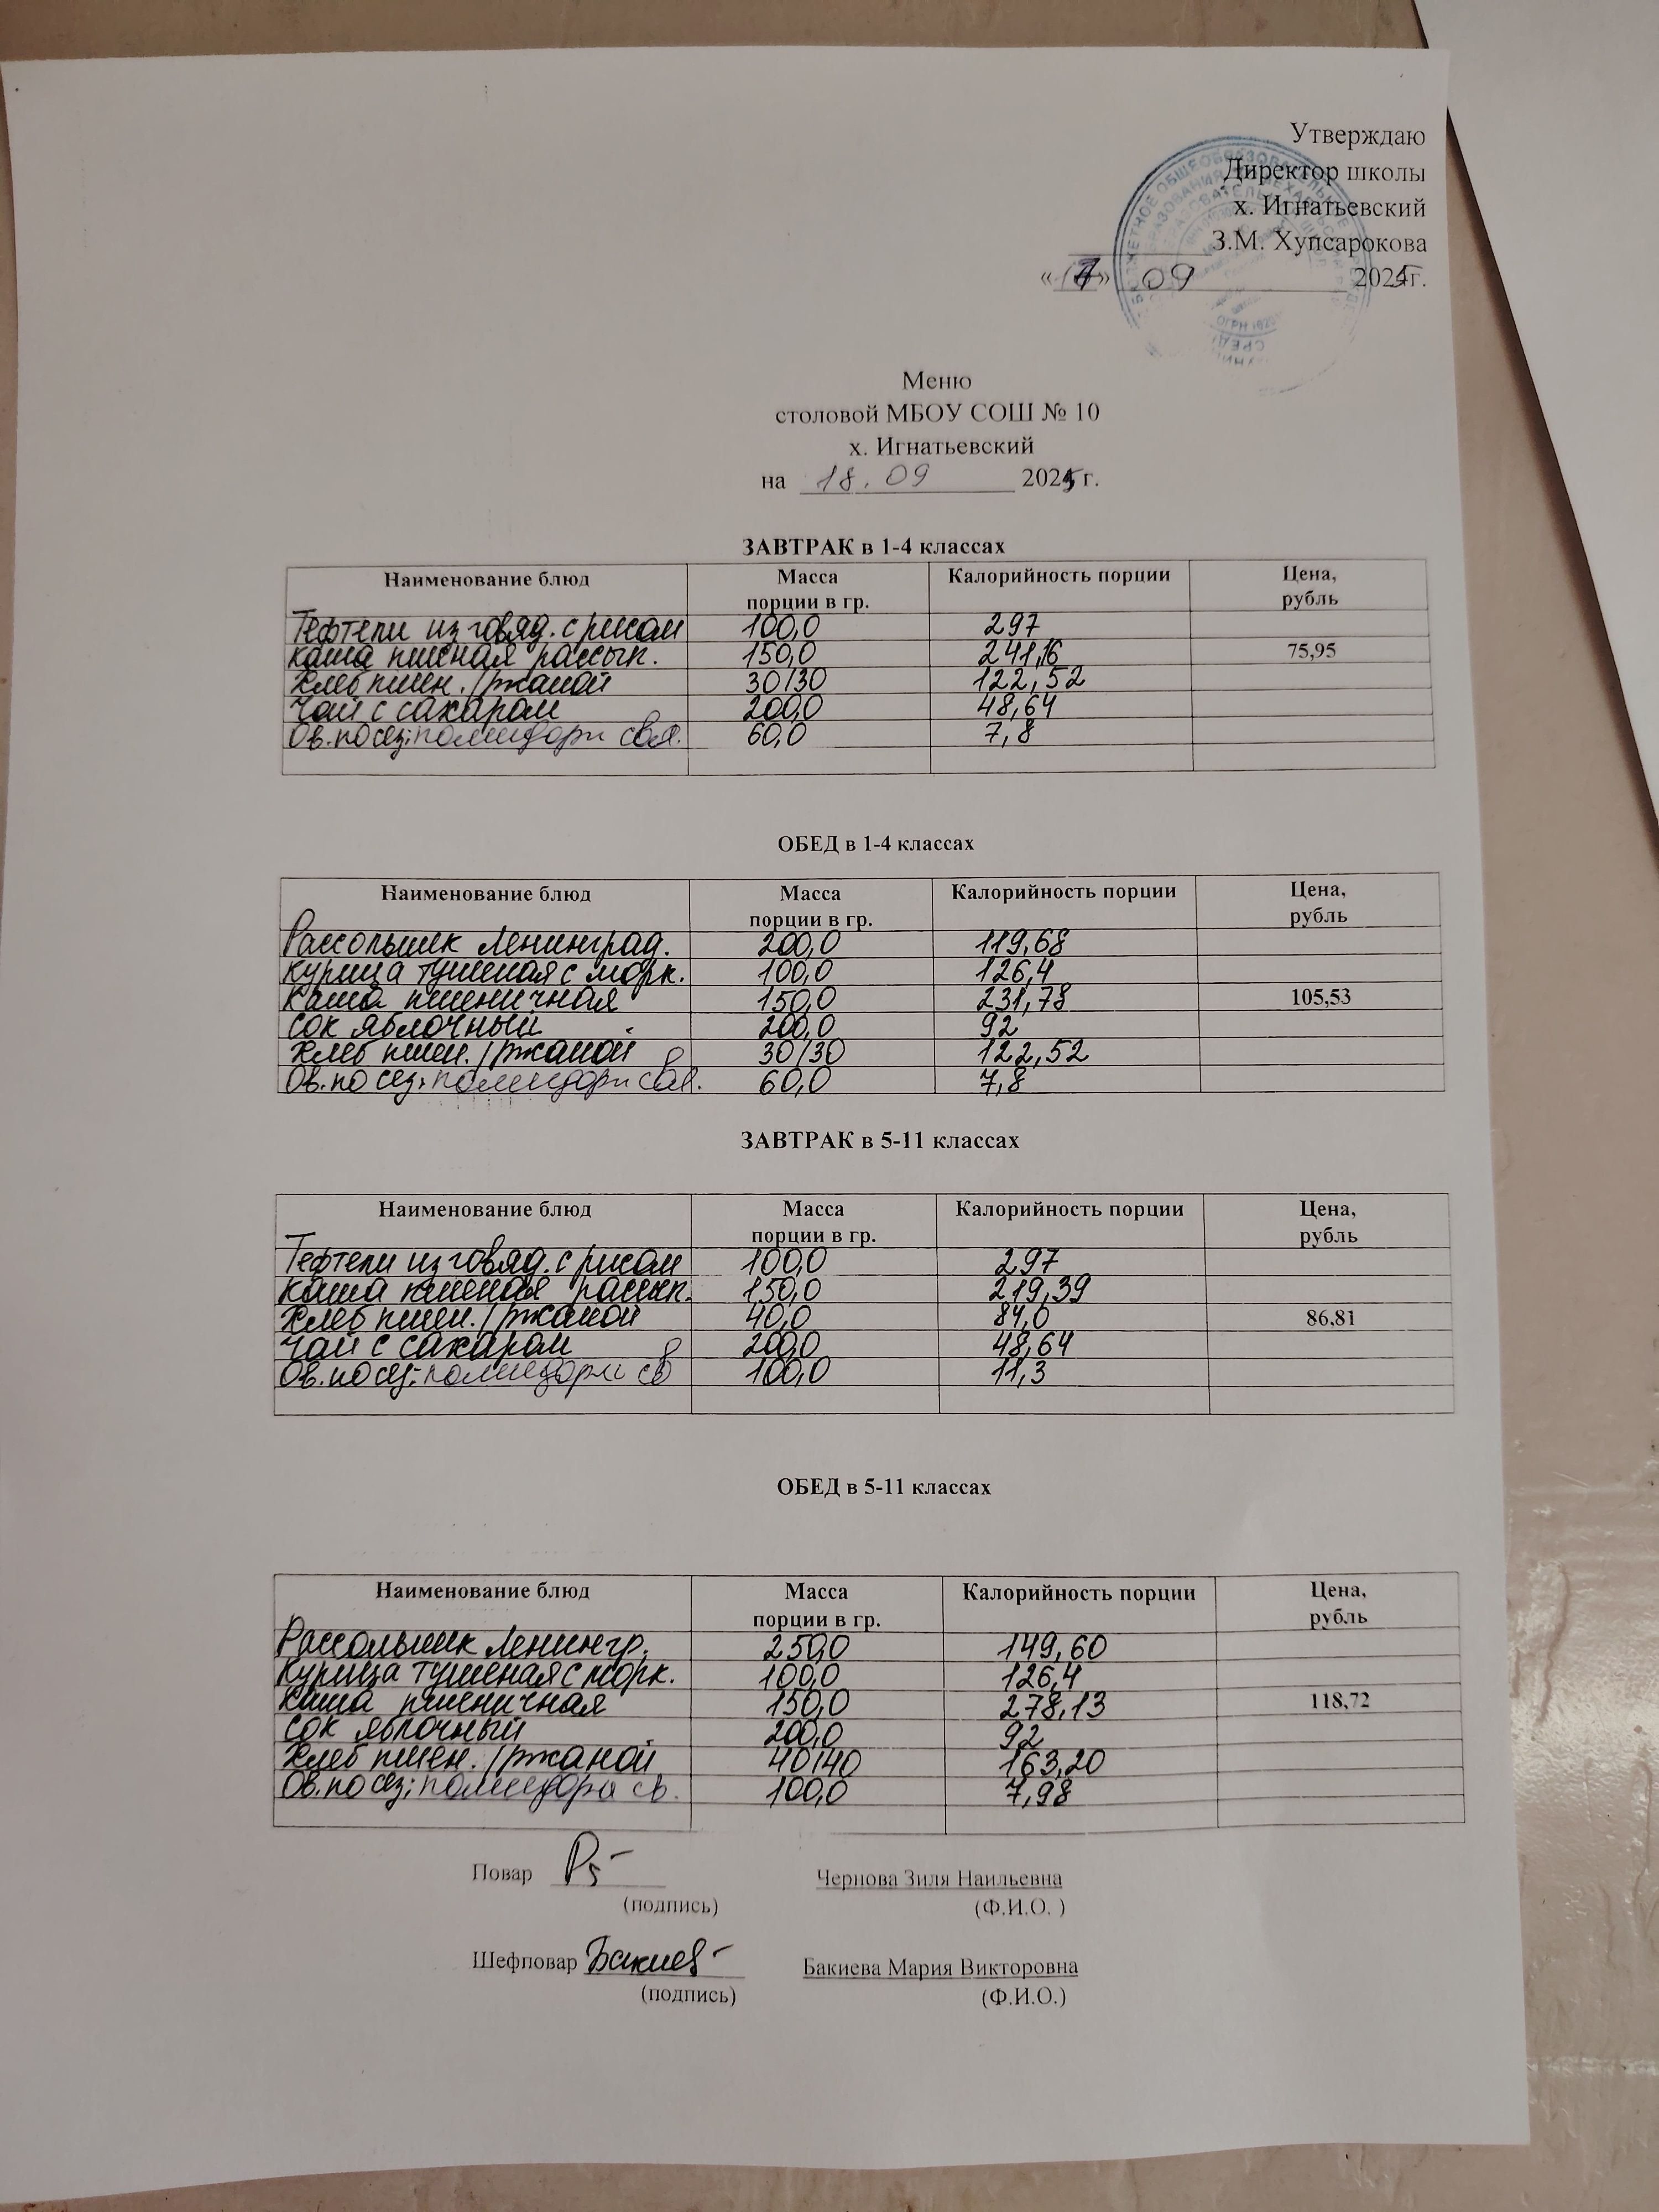 Утверждаю
Директор школы
х. Игнатьевский
З.М. Хупсарокова
«17» 09 2025г.
Меню
столовой МБОУ СОШ № 10
х. Игнатьевский
на 18.09 2025 г.
ЗАВТРАК в 1-4 классах
Наименование блюд Масса порции в гр. Калорийность порции Цена, рубль
Тефтели из говяд. с рисом 100,0 297
каша пшеная рассып. 150,0 241,16 75,95
Хлеб пшен./ржаной 30/30 122,52
Чай с сахаром 200,0 48,64
Ов. по сез: помидоры свеж. 60,0 7,8
ОБЕД в 1-4 классах
Наименование блюд Масса порции в гр. Калорийность порции Цена, рубль
Рассольник Ленинград. 200,0 119,68
Курица тушеная с морк. 100,0 126,4
Каша пшеничная 150,0 231,78 105,53
Сок яблочный 200,0 92
Хлеб пшен./ржаной 30/30 122,52
Ов. по сез: помидоры свеж. 60,0 7,8
ЗАВТРАК в 5-11 классах
Наименование блюд Масса порции в гр. Калорийность порции Цена, рубль
Тефтели из говяд. с рисом 100,0 297
Каша пшеная рассып. 150,0 219,39
Хлеб пшен./ржаной 40,0 84,0 86,81
Чай с сахаром 200,0 48,64
Ов. по сез: помидоры св 100,0 11,3
ОБЕД в 5-11 классах
Наименование блюд Масса порции в гр. Калорийность порции Цена, рубль
Рассольник Ленингр. 250,0 149,60
Курица тушеная с морк. 100,0 126,4
Каша пшеничная 150,0 278,13 118,72
Сок яблочный 200,0 92
Хлеб пшен./ржаной 40/40 163,20
Ов. по сез: помидора св. 100,0 7,98
Повар Чернова Зиля Наильевна
(подпись) (Ф.И.О. )
Шефповар Бакиев Бакиева Мария Викторовна
(подпись) (Ф.И.О.)